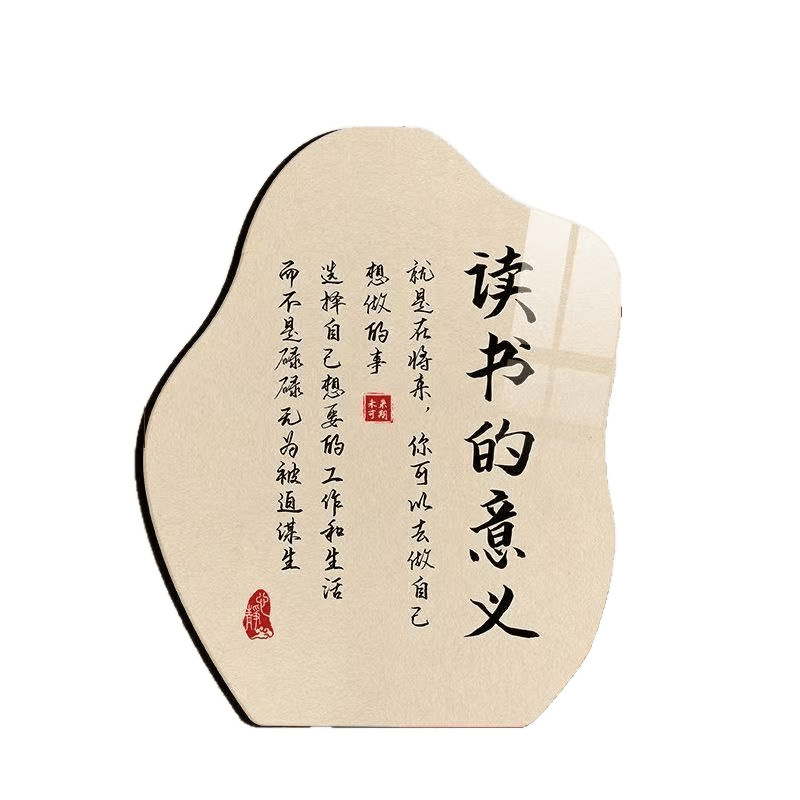 读书的意义
就是在将来，你可以去做自己
想做的事
未来可期
选择自己想要的工作和生活
而不是碌碌无为被迫谋生
心静